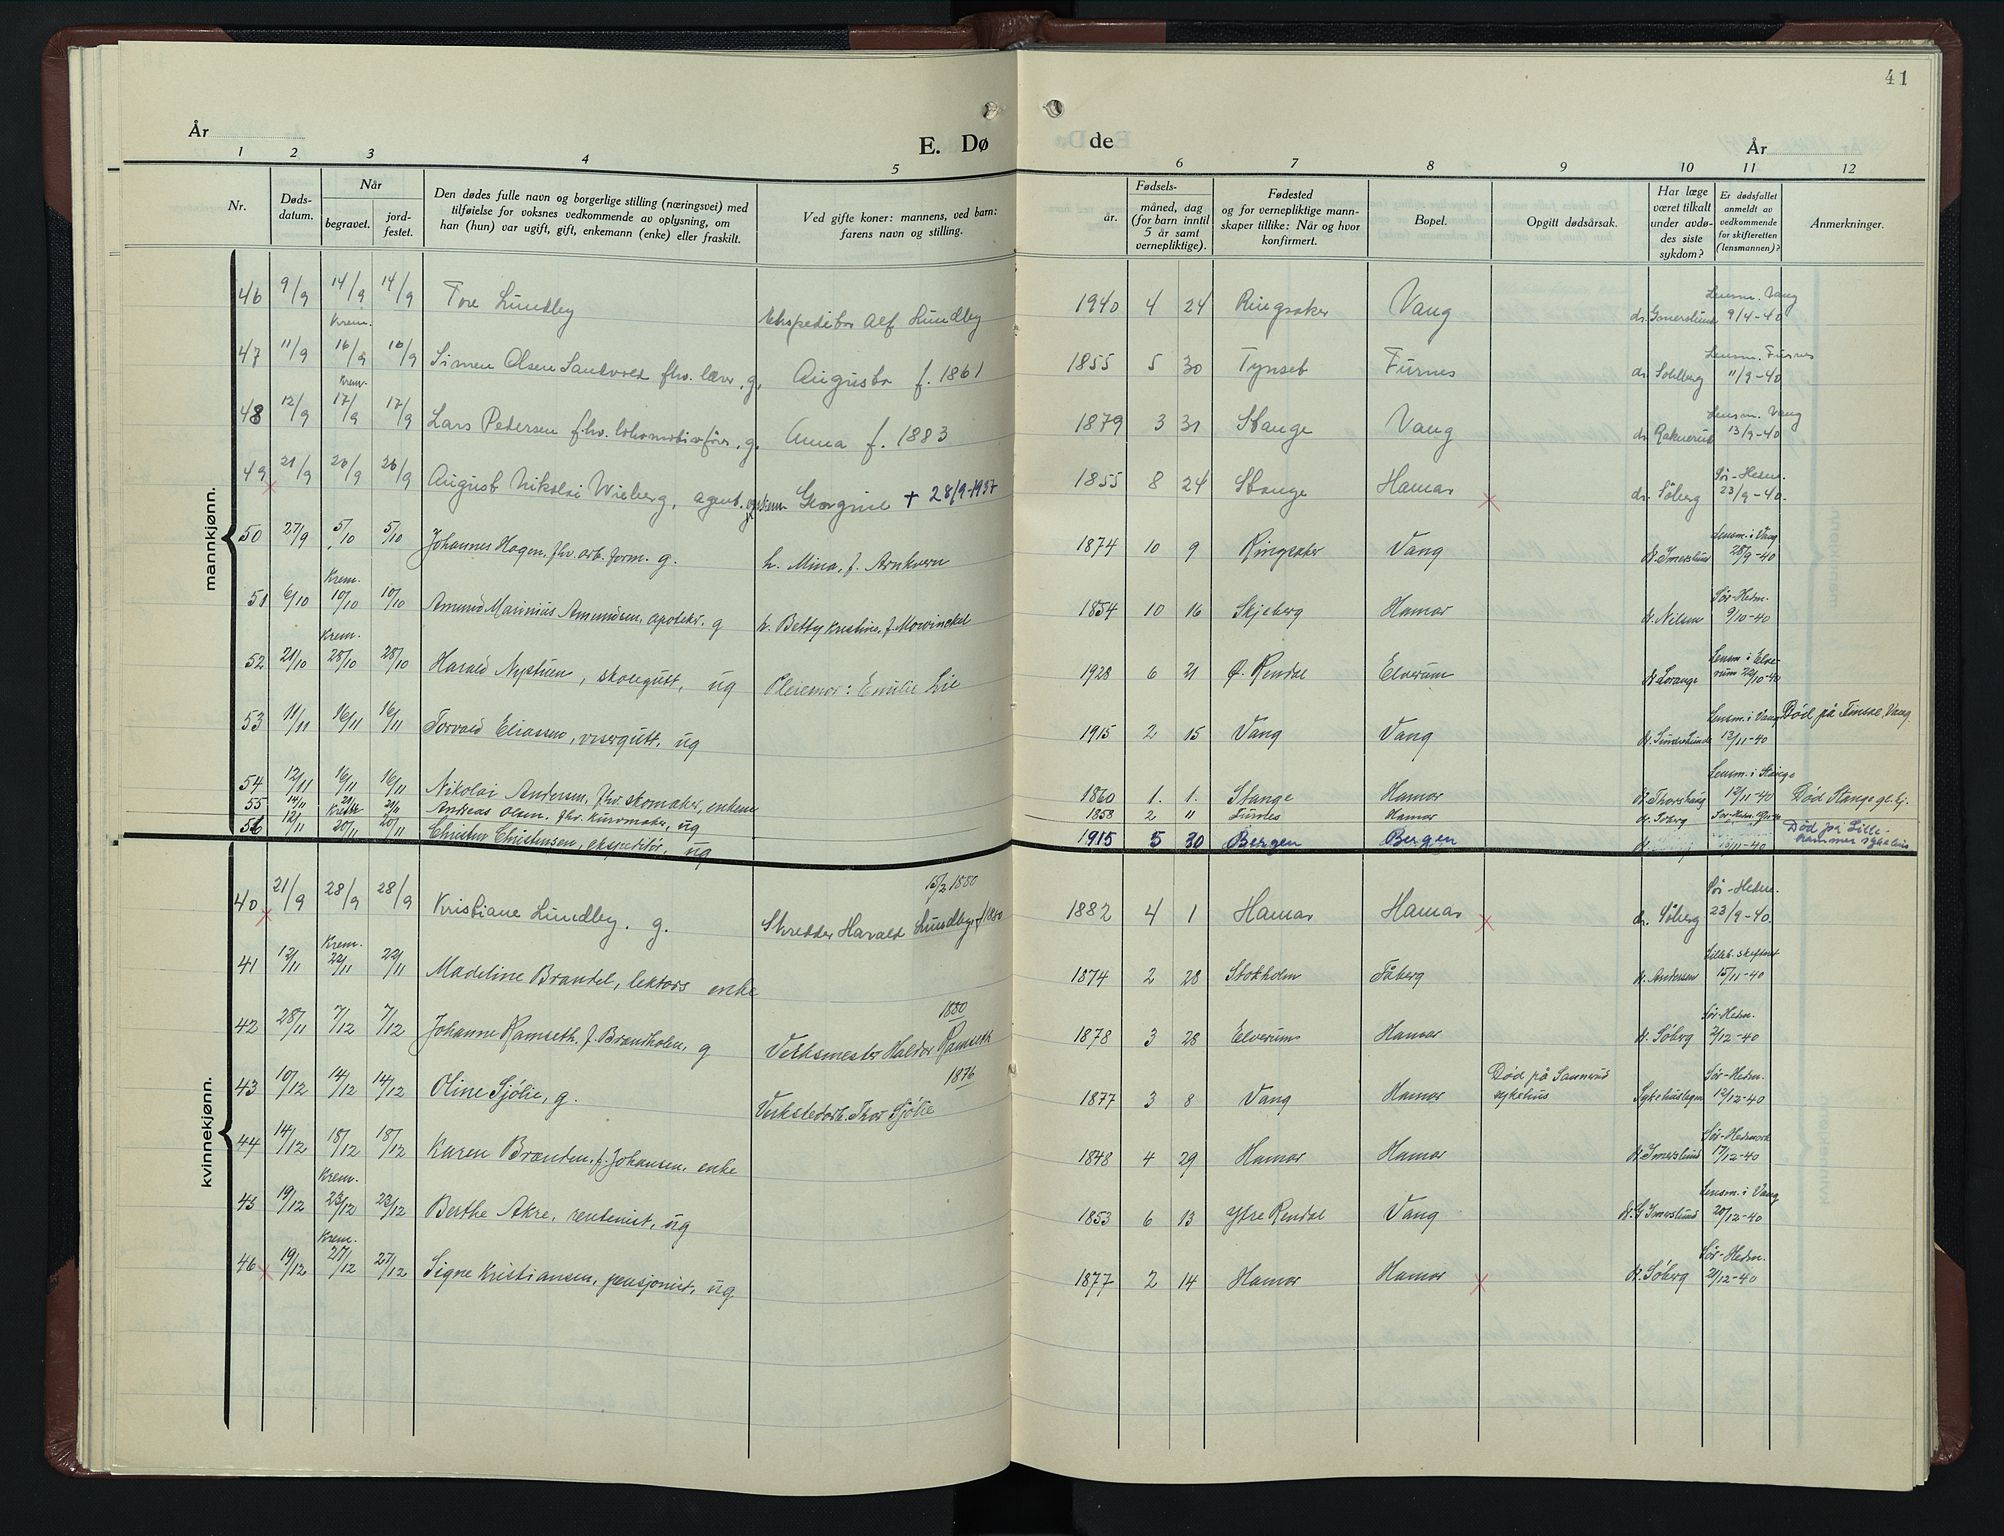 41
År
E. Dø de
År
1 2 3 4 5 6 7 8 9 10 11 12
Nr.
Døds-
datum.
Når
begravet.
jord-
festet.
Den dødes fulle navn og borgerlige stilling (næringsvei) med
tilføielse for voksnes vedkommende av oplysning, om
han (hun) var ugift, gift, enkemann (enke) eller fraskilt.
Ved gifte koner: mannens, ved barn:
farens navn og stilling.
Fødsels-
år.
måned, dag
(for barn inntil
5 år samt
vernepliktige).
Fødested
og for vernepliktige mann-
skaper tillike: Når og hvor
konfirmert.
Bopel.
Opgitt dødsårsak.
Har læge
været tilkalt
under avdø-
des siste
sykdom?
Er dødsfallet
anmeldt av
vedkommende
for skifteretten
(lensmannen)?
Anmerkninger.
mannkjønn.
46 9/9 14/9 14/9 Tore Lundby Ekspeditør Alf Lundby 1940 4 24 Ringsaker Vang Lensm. Vang 9/4-40
47 11/9 Krem. 16/9 16/9 Simen Olsen Sandvold fhv. lærer, g. Augusta f. 1861 1855 5 30 Tynset Furnes dr. Sohlberg Lensm. Furnes 11/9-40
48 12/9 Krem. 17/9 17/9 Lars Pedersen fhv. lokomotivfører, g. Anna f. 1883 1879 3 31 Stange Vang dr. Raknerud Lensm. Vang 13/9-40
49 21/9 26/9 26/9 August Nikolai Wieberg, agent, Georgine + 28/9-1937 1855 8 24 Stange Hamar dr. Søberg Sør-Hedm. 23/9-40.
50 27/9 5/10 5/10 Johannes Hagen, fhv. arb. form. g. h. Mina, f. Arnkvern 1874 10 9 Ringsaker Vang dr. Imerslund Lensm. i Vang 28/9-40
51 6/10 Krem. 10/10 10/10 Amund Marinius Amundsen, apoteker, g h. Betty Kristine, f. Mowinckel 1854 10 16 Skjeberg Hamar dr. Nilsen Sør-Hedm. 9/10-40
52 21/10 Krem. 28/10 28/10 Harald Nystuen, skolegutt, ug Pleiemor: Emilie Lie 1928 6 21 Ø. Rendal Elverum dr. Lorange Lensm. i Elve-
rum 26/10-40
53 11/11 16/11 16/11 Torvald Eliassen, visergutt, ug 1915 2 15 Vang Vang Lensm. i Vang 13/11-40 Død på Finsal, Vang.
54 12/11 16/11 16/11 Nikolai Andersen, fhv. skomaker, enkem 1860 1. 1. Stange Hamar dr. Thorshaug Lensm. i Stange 12/11-40 Død Stange gl. hj.
55 14/11 20/11 Andreas Olsen, fhv. kurvmaker, ug 1858 2 11 Furnes Hamar dr. Søberg
56 12/11 Krem. 20/11 20/11 Christen Christensen, ekspeditør, ug 1915 5 30 Bergen Bergen Død på Lille-
hammer sykehus
kvinnekjønn.
40 21/9 28/9 28/9 Kristiane Lundby, g. Skredder Harald Lundby 15/2 1880 1882 4 1 Hamar Hamar dr. Søberg Sør-Hedm. 23/9-40.
41 12/11 Krem. 22/11 22/11 Madeline Brantel, lektors enke 1874 2 28 Stokholm Fåberg dr. Andersen Lilleh. skifterett 15/11-40
42 28/11 7/12 7/12 Johanne Ramseth, f. Brændholen, g Verksmester Haldor Ramseth 1880 1878 3 28 Elverum Hamar dr. Søberg Sør-Hedm. 2/12-40
43 10/12 14/12 14/12 Oline Sjølie, g. Verkstedarb. Thor Sjølie 1876 1877 3 8 Vang Hamar Død på Sannerud
sykehus Sykehuslegen Sør-Hedm. 12/12-40
44 14/12 18/12 18/12 Karen Brænden, f. Johansen, enke 1848 4 29 Hamar Hamar dr. Imerslund Sør-Hedmark 17/12-40
45 19/12 Krem. 23/12 23/12 Berthe Akre, rentenist, ug 1853 6 13 Ytre Rendal Vang dr. G Imerslund Lensm. i Vang 20/12-40
46 19/12 Krem. 27/12 27/12 Signe Kristiansen, pensjonist, ug. 1877 2 14 Hamar Hamar dr. Søberg Sør-Hedm. 21/12-40